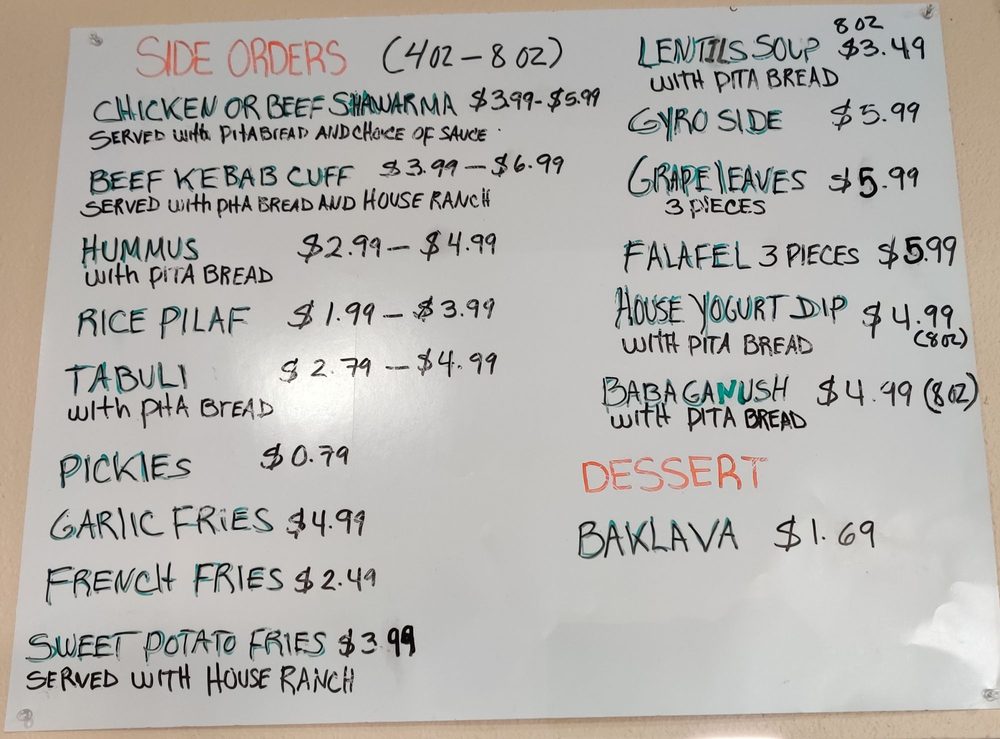 SIDE ORDERS (4OZ – 8 OZ)
CHICKEN OR BEEF SHAWARMA $3.99 - $5.99
SERVED with PITA BrEAD AND CHOICE OF SAUCE
BEEF KEBAB CUFF $3.99 – $6.99
SERVED with PITA BREAD AND HOUSE RANCH
HUMMUS $2.99 – $4.99
with PITA BREAD
RICE PILAF $1.99 – $3.99
TABULI $2.79 – $4.99
with PITA BrEAD
PICKlES $0.79
GARlIC FRiES $4.99
FRENCH FRIES $2.49
SWEET POTATO FRIES $3.99
SERVED WITH HOUSE RANCH
8 OZ
LENTILS SOUP $3.49
WITH PITA BREAD
GYRO SIDE $5.99
GRAPE lEAVES $5.99
3 PIECES
FALAFEL 3 PIECES $5.99
HOUSE YOGURT DIP $4.99
WITH PITA BREAD (8OZ)
BABAGANUSH $4.99 (8OZ)
WITH PITA BREAD
DESSERT
BAKLAVA $1.69